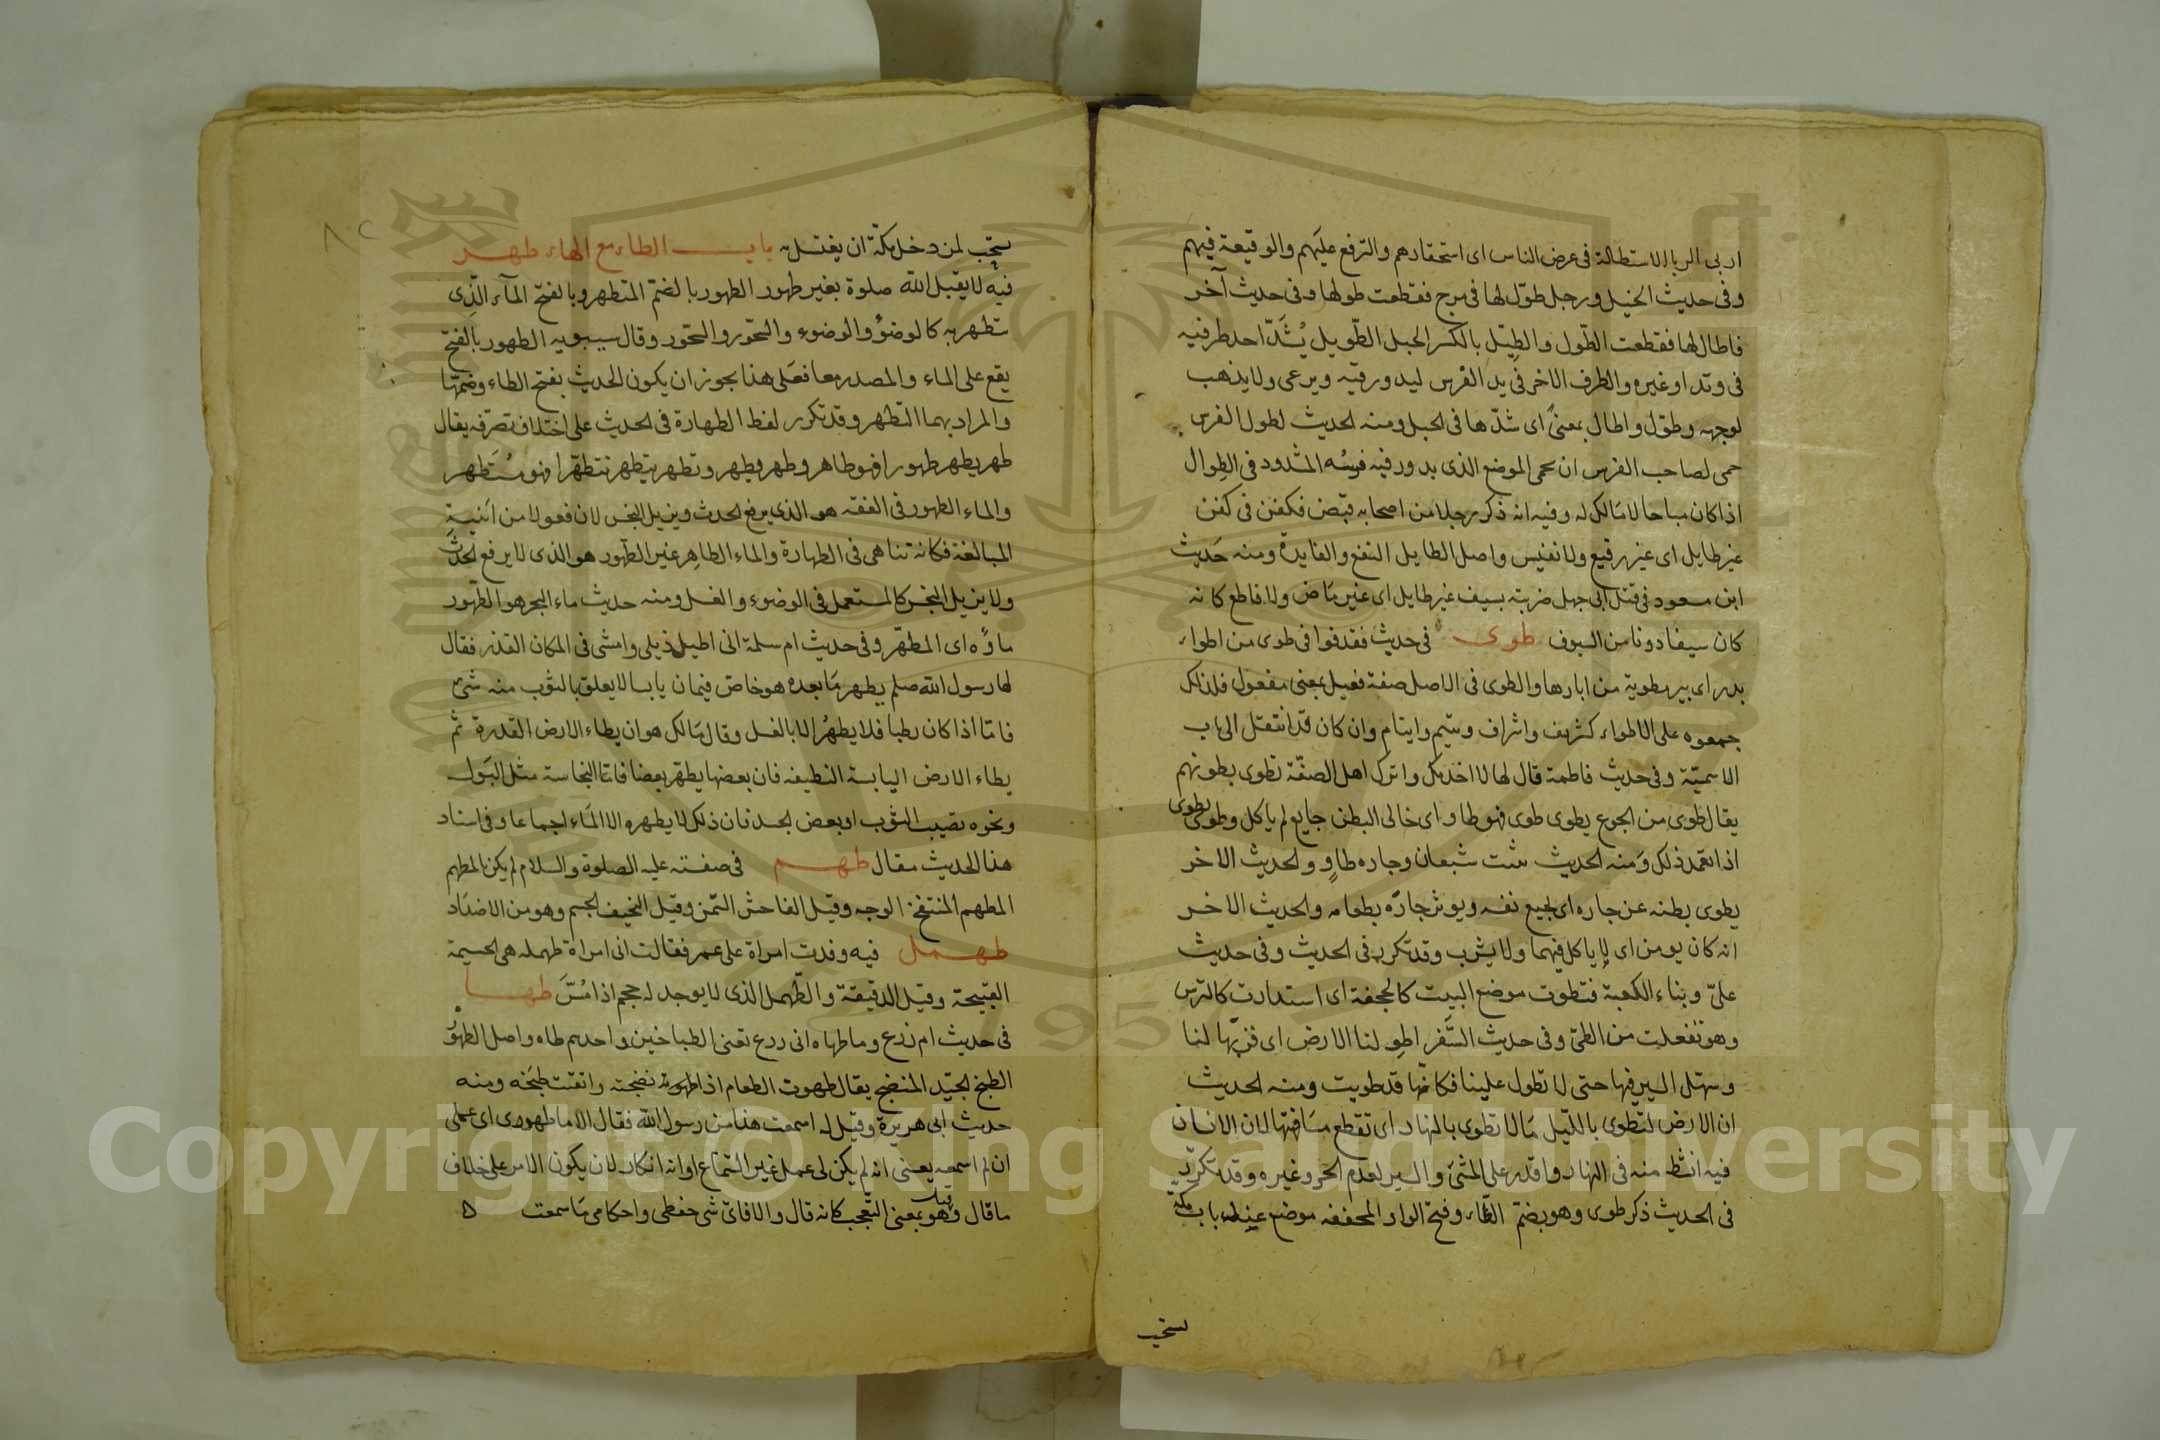 اربى الربا الاستطالة فى عرض الناس اى استحقارهم والترفع عليهم والوقيعة فيهم
وفى حديث الخيل ورجل طوّل لها فى مرج فقطعت طولها وفى حديث آخر
فاطال لها فقطعت الطّول والطِيَل بالكسر الحبل الطّويل يُشَدّ احد طرفيه
فى وتد او غيره والطرف الاخر فى يد الفرس ليدور فيه ويرعى ولا يذهب
لوجهه وطوّل واطال بمعنىً اى شدّها فى الحبل ومنه الحديث لطول الفرس
حمى لصاحب الفرس ان يحمى الموضع الذى يدور فيه فرسُه المشدود فى الطِوال
اذا كان مباحا لا مَالك له وفيه انه ذكر رجلا من اصحابه قبض فكفن فى كفن
غير طايل اى غير رفيع ولا نفيس واصل الطايل النفع والفايدة ومنه حَديث
ابن مسعود فى قتل ابى جهل ضربته بسيف غير طايل اى غير مَاض ولا قاطع كانه
كان سيفا دونا من السيوف طوى فى حديث فقذفوا فى طوى من اطواء
بدر اى بير مطوية من ابارها والطوى فى الاصل صفة فعيل بمعنى مفعول فلذلك
جمعوه على الاطواء كشريف واشراف ويتيم وايتام وان كان قد انتقل الى باب
الاسميّة وفى حديث فاطمة قال لها لا اخدمك واترك اهل الصفّة تطوى بطونهم
يقال طوى من الجوع يطوى طوى فهو طاو اى خالى البطن جايع لم ياكل وطوى يطوى
اذا تعمد ذلك وَمنه الحديث شبعان وجاره طاوٍ والحديث الاخر
يطوى بطنه عن جاره اى يجيع نفسه ويوثر جارَه بطعامه والحديث الاخر
انه كان يومين اى لا ياكل فيهما ولا يشرب وقد تكرر فى الحديث وفى حديث
علىّ وبناء الكعبة فتطوت موضع البيت كالحجفة اى استدارت كالترس
وهو تفعلت من الطىّ وفى حديث السَّفر اطو لنا الارض اى قربّها لنا
وسهّل السير فيها حتى لا تطول علينا فكانّها قد طويت ومنه الحديث
ان الارض لتطوى بالليل مَا لا تطوى بالنهار اى تقطع مسَافتها لان الانسان
فيه انشط منه فى النهار واقدر على المشى والسير لعدم الحر وغيره وقد تكرّر
فى الحديث ذكر طوى وهو بضمّ الطّاء وفتح الواو المخففه موضع عند باب مكة
يستحب
يستحّب لمن دخل مكّة ان يغتسل به باب الطاء مع الهاء طهر
فيه لا يقبل الله صلوة بغير طهور الطهور بالضمّ التطهر وبالفتح المآء الّذِى
يتطهر به كالوضُؤ والوضوء والسُحور والسَحور وقال سيبويه الطهور بالفتح
يقع على الماء والمصدر معا فعَلى هذا يجوز ان يكون الحديث بفتح الطاء وضمّها
والمراد بهما التطهر وقد تكرر لفظ الطهارة فى الحديث على اختلاف تصرّفه يقال
طهر يطهر طهورا فهو طاهر وطهر يطهر وتطهر يتطهر تطهّرا فهو مُتَطهر
والماء الطهور فى الفقه هو الذى يرفع الحدث ويزيل النجس لان فعولا من ابَنيةِ
المبالغة فكانه تناهى فى الطهارة والماء الطاهِر غير الطّهور هو الذى لا يرفع الحَدَثَ
ولا يزيل النجس كالمستعمل فى الوضوء والغسل ومنه حديث ماء البحر هو الطّهور
ماؤه اى المطهّر وفى حديث ام سلمة انى اطيل ذيلى وامشى فى المكان القذر فقال
لها رسول الله صلم يطهر مَا بعده هو خاصّ فيما كان يابسا لا يعلق بالثوب منه شئ
فامّا اذا كان رطبا فلا يطهُر الا بالغسل وقال مَالك هو ان يطاء الارض القذرة ثم
يطاء الارض اليابسة النظيفه فان بعضها يطهّر بعضا فامّا النجاسة مثل البَول
ونحوه تصيب الثوب او بعض الجسد فان ذلك لا يطهره الا المَاء اجماعا وفى اسناد
هذا الحديث مقال طهم فى صفته عليه الصلوة والسلام لم يكن بالمطهم
المطهم المنتفخ الوجه وقيل الفاحش السّمن وقيل النحيف الجسم وهو من الاضدَاد
طهمل فيه وفدت امراة على عمر فقالت انى امراة طهمله هى الجسيمة
القبيحة وقيل الدقيقة والطّهمل الذى لا يوجد له حجم اذا مُسَّ طها
فى حديث ام زرع وما طهاه ابى زرع تعنى الطباخين واحدهم طاه واصل الطهو
الطبخ الجيّد المنضج يقال طهوت الطعام اذا انضجته واتقنت طبخَه ومنه
حديث ابى هريرة وقيل له اسمعت هذا من رسول الله فقال الا ما طهوى اى عملى
ان لم اسمعه يعنى انه لم يكن لى عمل غير السّمَاع او انه انكار لان يكون الامر على خلاف
ما قال وقيل هو بمعنى التعّجب كانه قال والا فاىّ شى حفظى واحكامى مَا سمعت ه
Copyright © King Saud University
1957